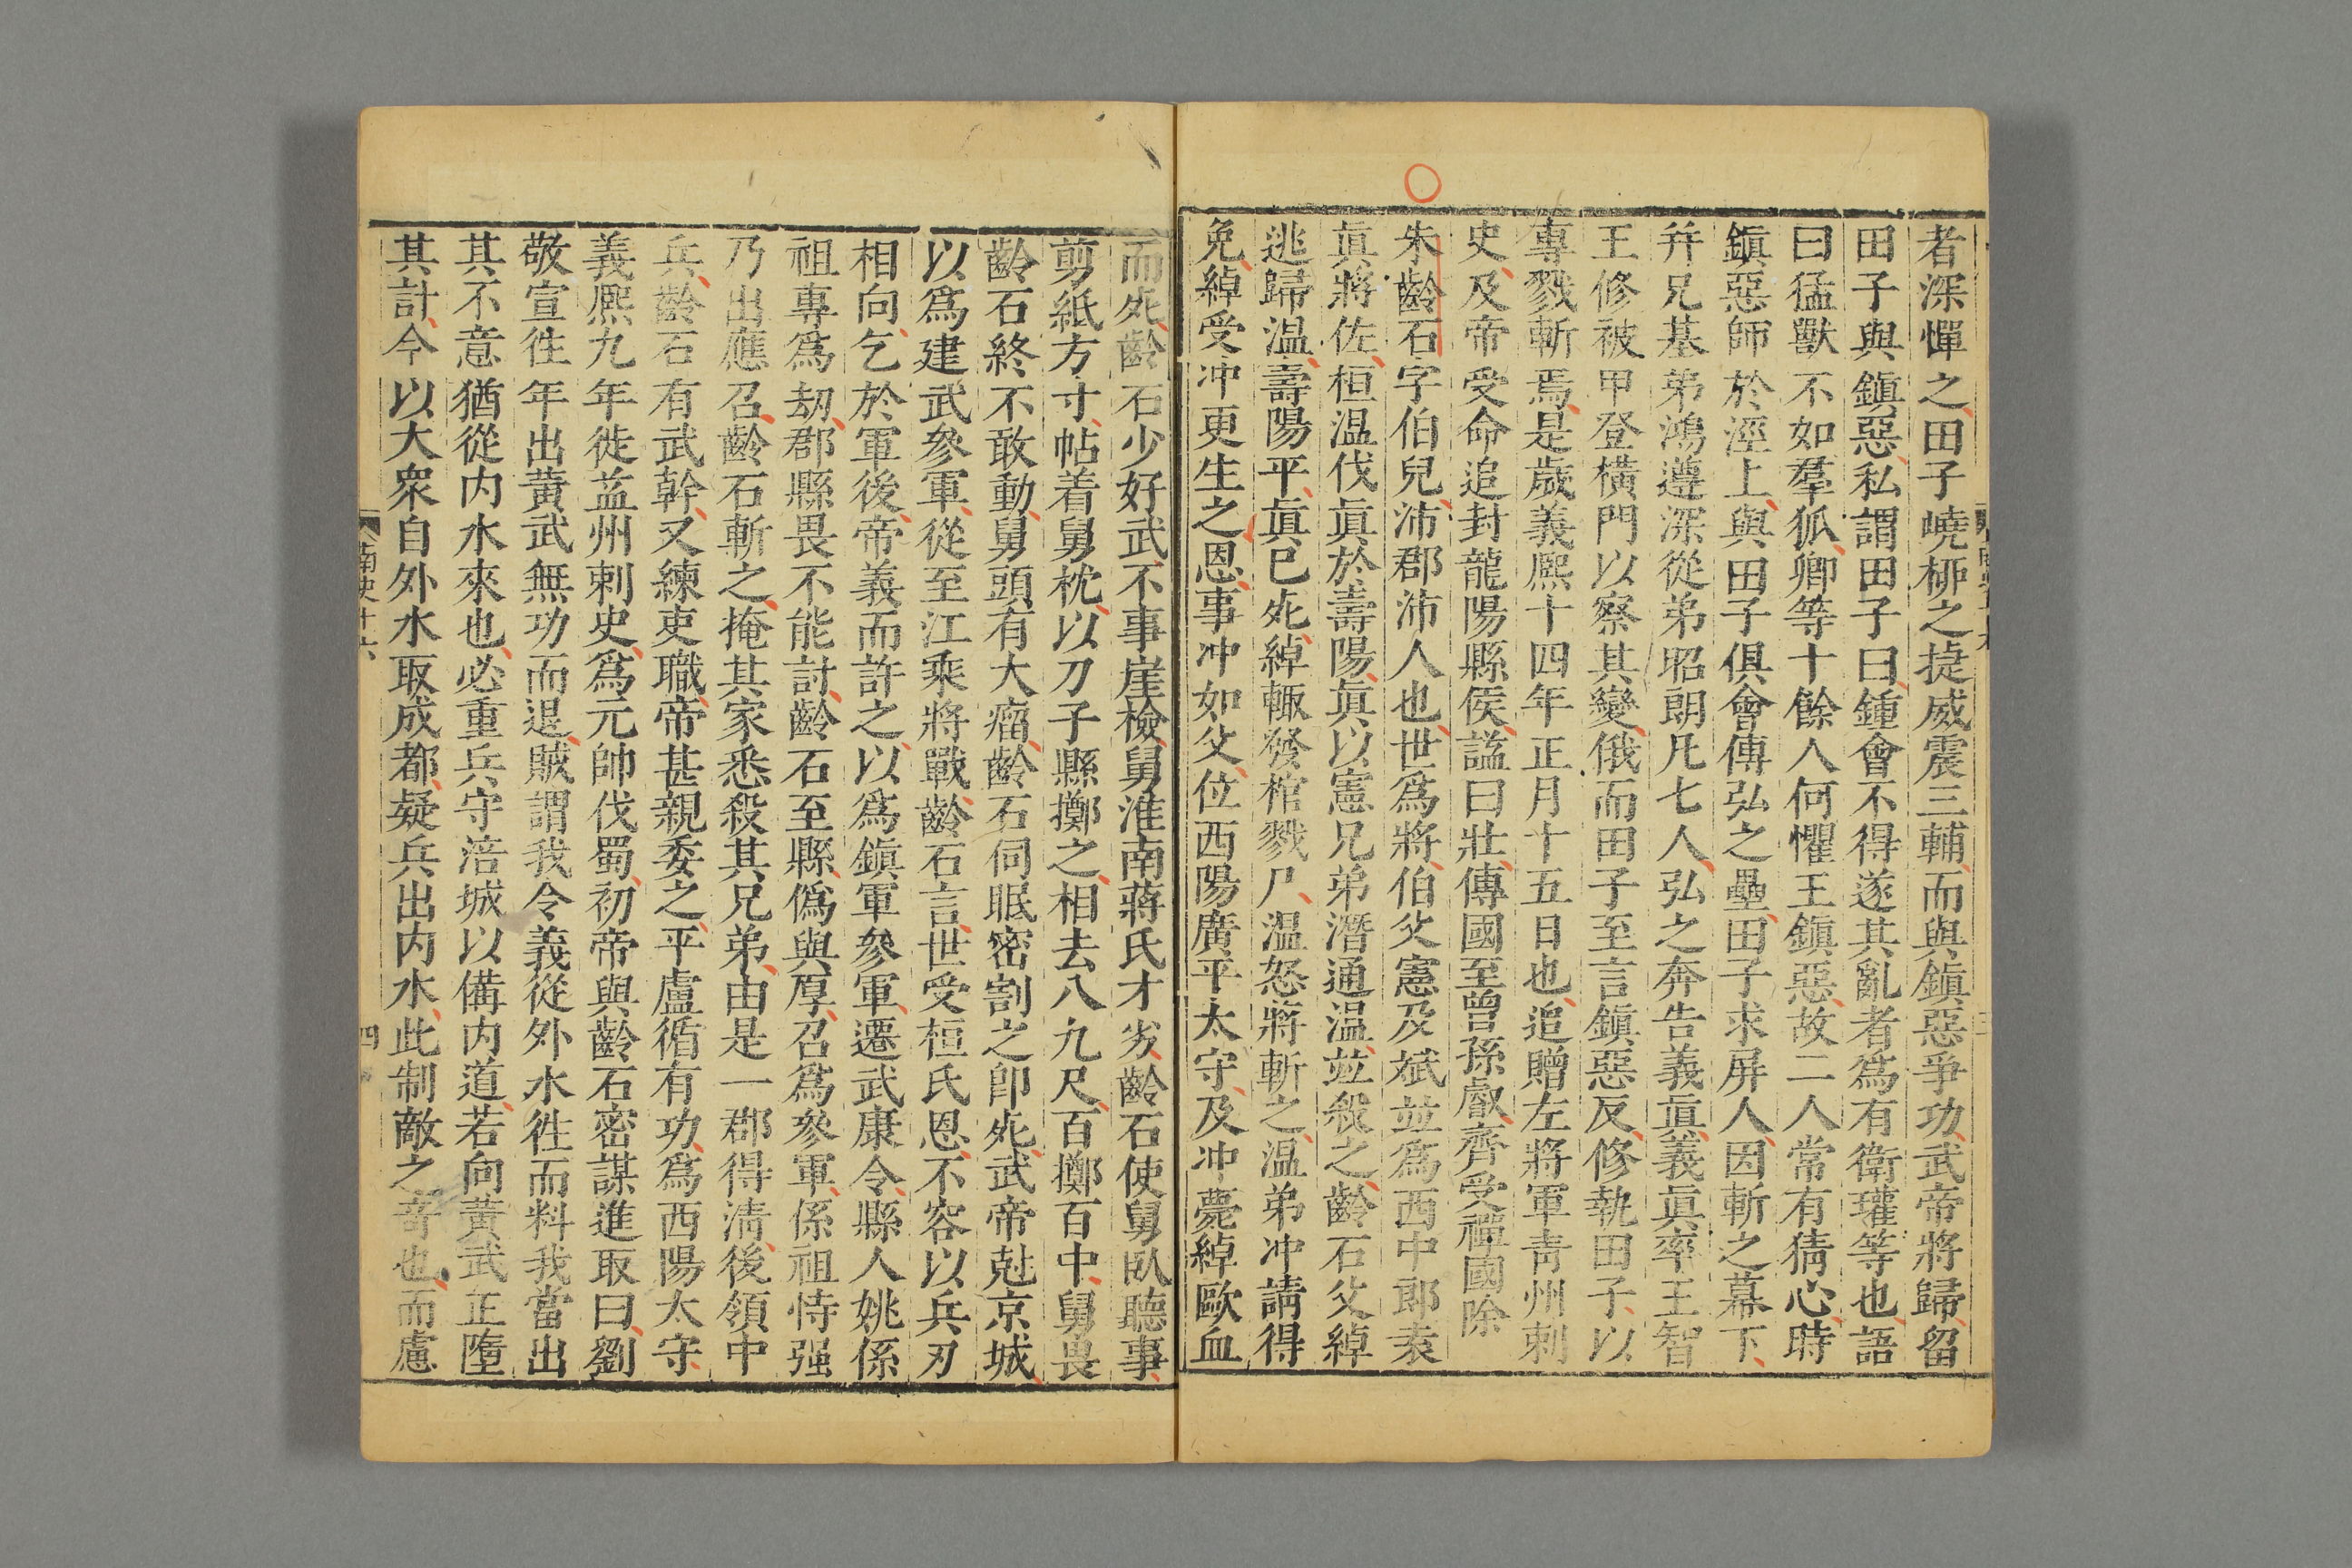 者深憚之田子嶢柳之捷威震三輔而與鎮惡爭功武帝將歸留
田子與鎮惡私謂田子曰鍾會不得遂其亂者為有衛瓘等也語
曰猛獸不如羣狐卿等十餘人何懼王鎮惡故二人常有猜心時
鎮惡師於涇上與田子俱會傳弘之壘田子求屏人因斬之幕下
并兄基弟鴻遵深從弟昭朗凡七人弘之奔告義眞義眞率王智
王修被甲登橫門以察其變俄而田子至言鎮惡反修執田子以
專戮斬焉是歲義熙十四年正月十五日也追贈左將軍青州刺
史及帝受命追封龍陽縣侯謚曰壯傳國至曾孫叡齊受禪國除
朱齡石字伯兒沛郡沛人也世為將伯父憲及斌並為西中郎袁
眞將佐桓温伐眞於壽陽眞以憲兄弟潛通温並殺之齡石父綽
逃歸温壽陽平眞已死綽輙發棺戮尸温怒將斬之温弟冲請得
免綽受冲更生之恩事冲如父位西陽廣平太守及冲薨綽歐血
而死齡石少好武不事崖檢舅淮南蔣氏才劣齡石使舅臥聽事
剪紙方寸帖着舅枕以刀子縣擲之相去八九尺百擲百中舅畏
齡石終不敢動舅頭有大瘤齡石伺眠密割之卽死武帝尅京城
以為建武參軍從至江乘將戰齡石言世受桓氏恩不容以兵刃
相向乞於軍後帝義而許之以為鎮軍參軍遷武康令縣人姚係
祖專為刼郡縣畏不能討齡石至縣僞與厚召為參軍係祖恃强
乃出應召齡石斬之掩其家悉殺其兄弟由是一郡得淸後領中
兵齡石有武幹又練吏職帝甚親委之平盧循有功為西陽太守
義熙九年徙益州刺史為元帥伐蜀初帝與齡石密謀進取曰劉
敬宣徃年出黃武無功而退賊謂我今義從外水徃而料我當出
其不意猶從内水來也必重兵守涪城以備内道若向黃武正墮
其計今以大衆自外水取成都疑兵出内水此制敵之奇也而慮
南史十六
四